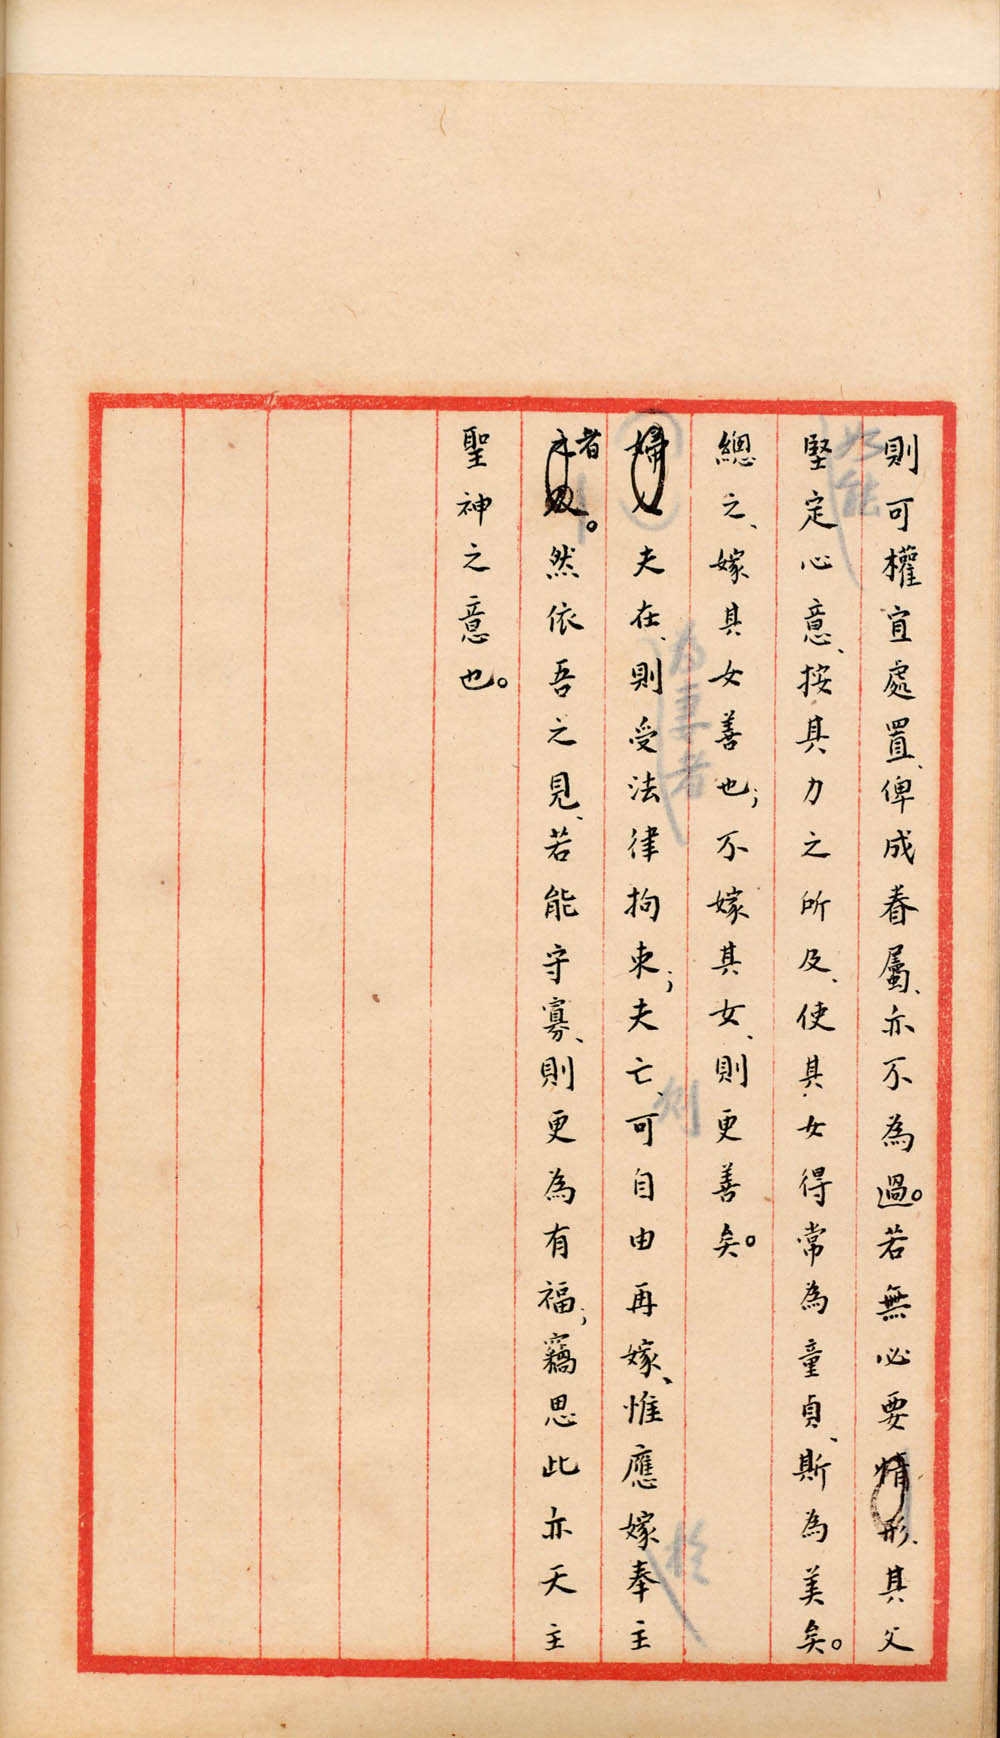 則可權宜處置、俾成眷屬、亦不為過。若無必要情形、其父
如能
堅定心意、按其力之所及、使其女得常為童貞、斯為美矣。
總之、嫁其女善也；不嫁其女、則更善矣。
為妻者
則
於
婦人夫在、則受法律拘束；夫亡、可自由再嫁、惟應嫁奉主
者。然依吾之見、若能守寡、則更為有福；竊思此亦天主
聖神之意也。